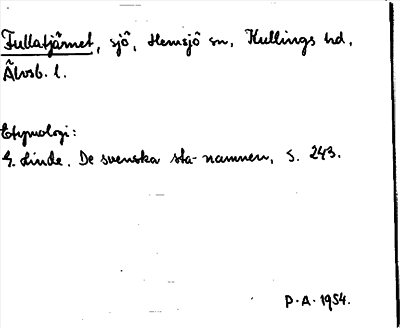 Fullatjärnet, sjö, Hemsjö sn, Kullings hd,
Älvsb. l.
Etymologi:
G. Linde. De svenska sta-namnen, s. 243.
P.A. 1954.